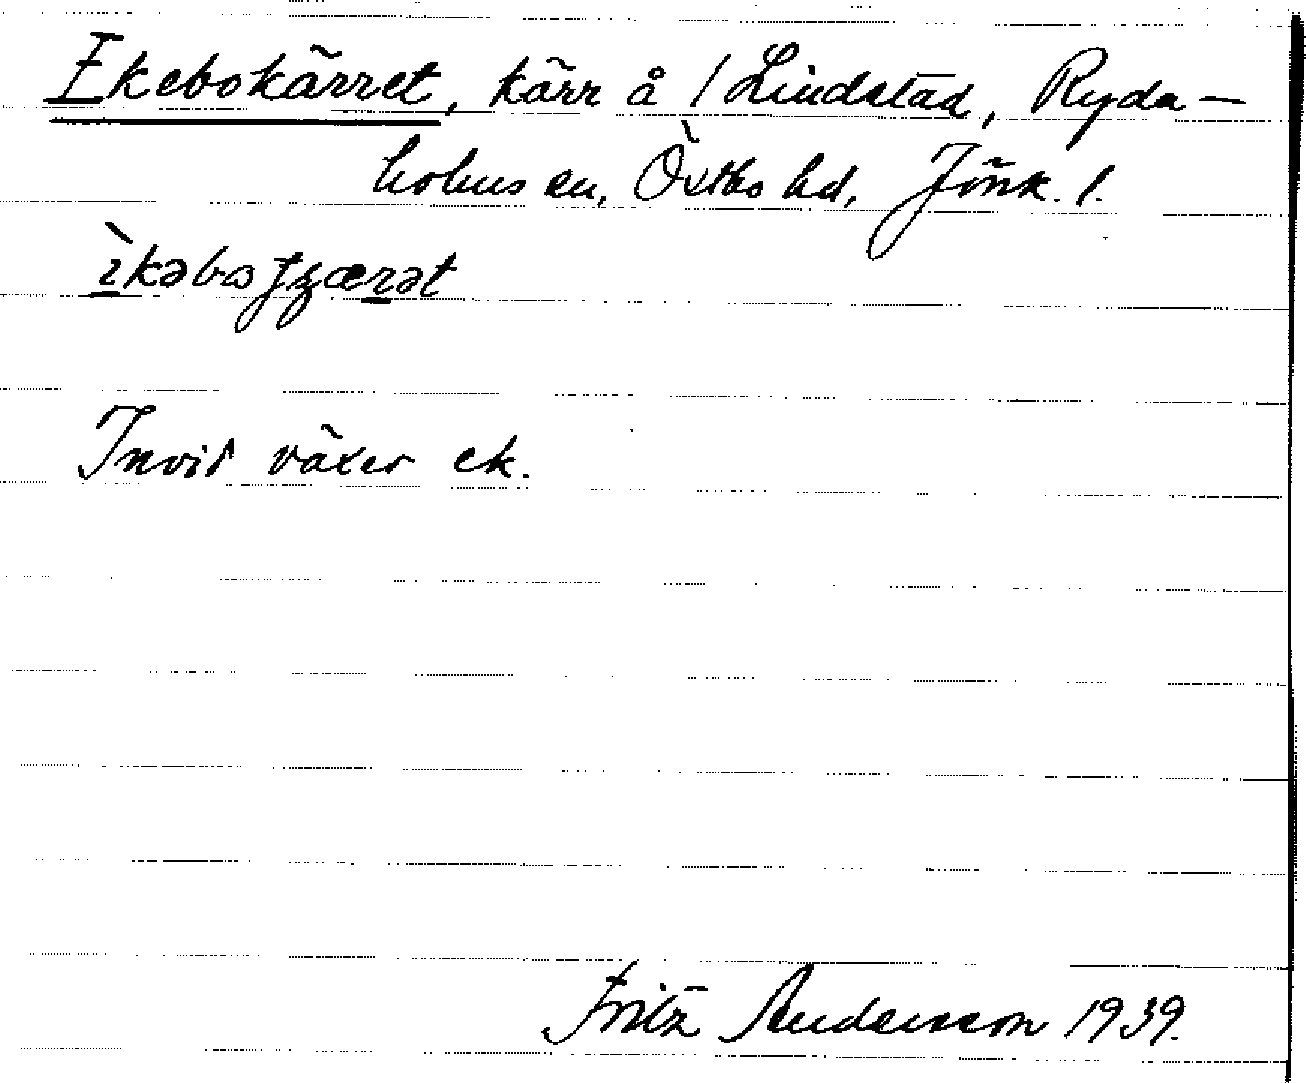 Ekebokärret, kärr å / Lindstad, Ryda-
holms sn, Östbo hd, Jönk. l.
Invid växer ek.
Fritz Andersson 1939.